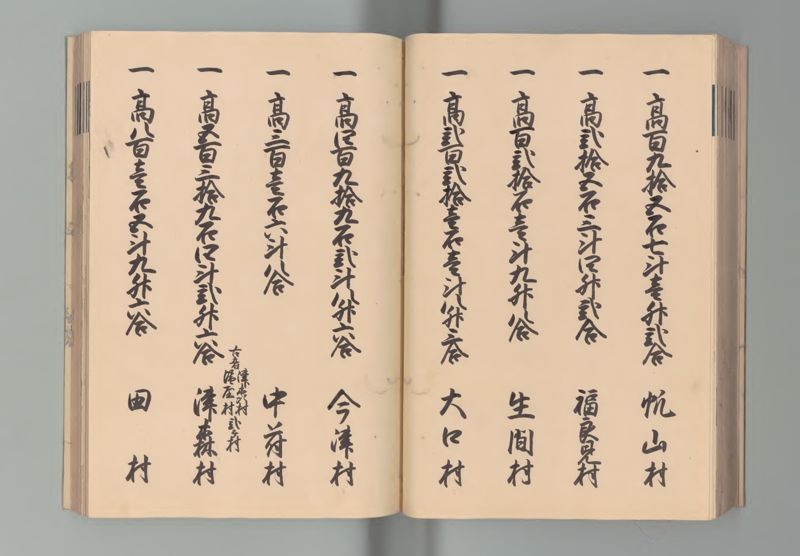 一 高百九拾五石七斗壱升弐合 帆山村
一 高弐拾五石三斗四升弐合 福良見村
一 高百弐拾石壱斗九升八合 生間村
一 高弐百弐拾壱石壱斗八升六合 大口村
一 高四百九拾九石弐斗八升六合 今津村
一 高三百壱石六斗八合 中府村
一 高五百三拾九石四斗弐升六合 津森村
古者
村弐ヶ村
一 高八百壱石五斗九升六合 田村